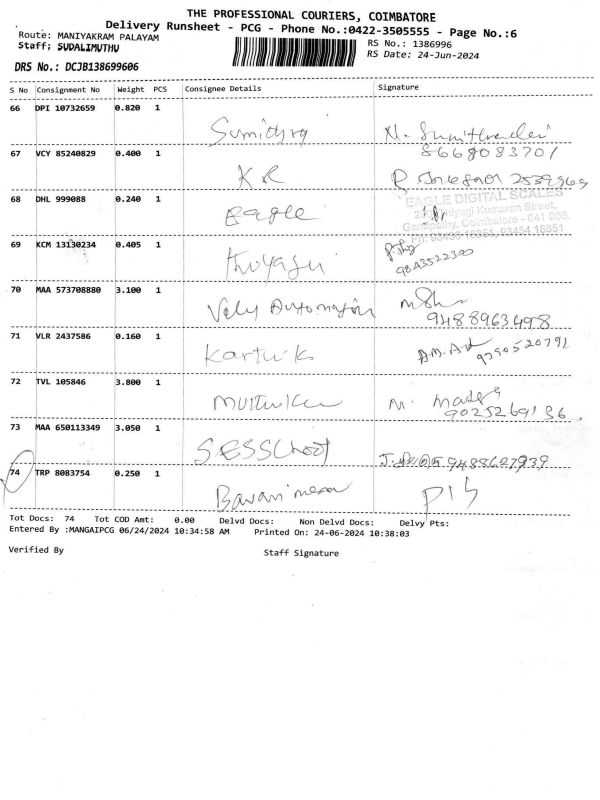 THE PROFESSIONAL COURIERS, COIMBATORE
Delivery Runsheet - PCG - Phone No.:0422-3505555 - Page No.:6
Route: MANIYAKRAM PALAYAM
Staff; SUDALIMUTHU
RS No.: 1386996
RS Date: 24-Jun-2024
DRS No.: DCJB138699606
S No Consignment No Weight PCS Consignee Details Signature
66 DPI 10732659 0.820 1
Sumithra
8668083701
67 VCY 85240829 0.400 1
KR
68 DHL 999088 0.240 1
Eagle
EAGLE DIGITAL SCALES
Thiyagi Kumaran Street,
Ganapathy, Coimbatore - 641 006.
69 KCM 13130234 0.405 1
9843522300
70 MAA 573708880 3.100 1
Vely Automation
9488963498
71 VLR 2437586 0.160 1
Kartuik
9790520791
72 TVL 105846 3.800 1
9025269136
73 MAA 650113349 3.050 1
SES School
9488627939
74 TRP 8083754 0.250 1
Tot Docs: 74 Tot COD Amt: 0.00 Delvd Docs: Non Delvd Docs: Delvy Pts:
Entered By :MANGAIPCG 06/24/2024 10:34:58 AM Printed On: 24-06-2024 10:38:03
Verified By Staff Signature